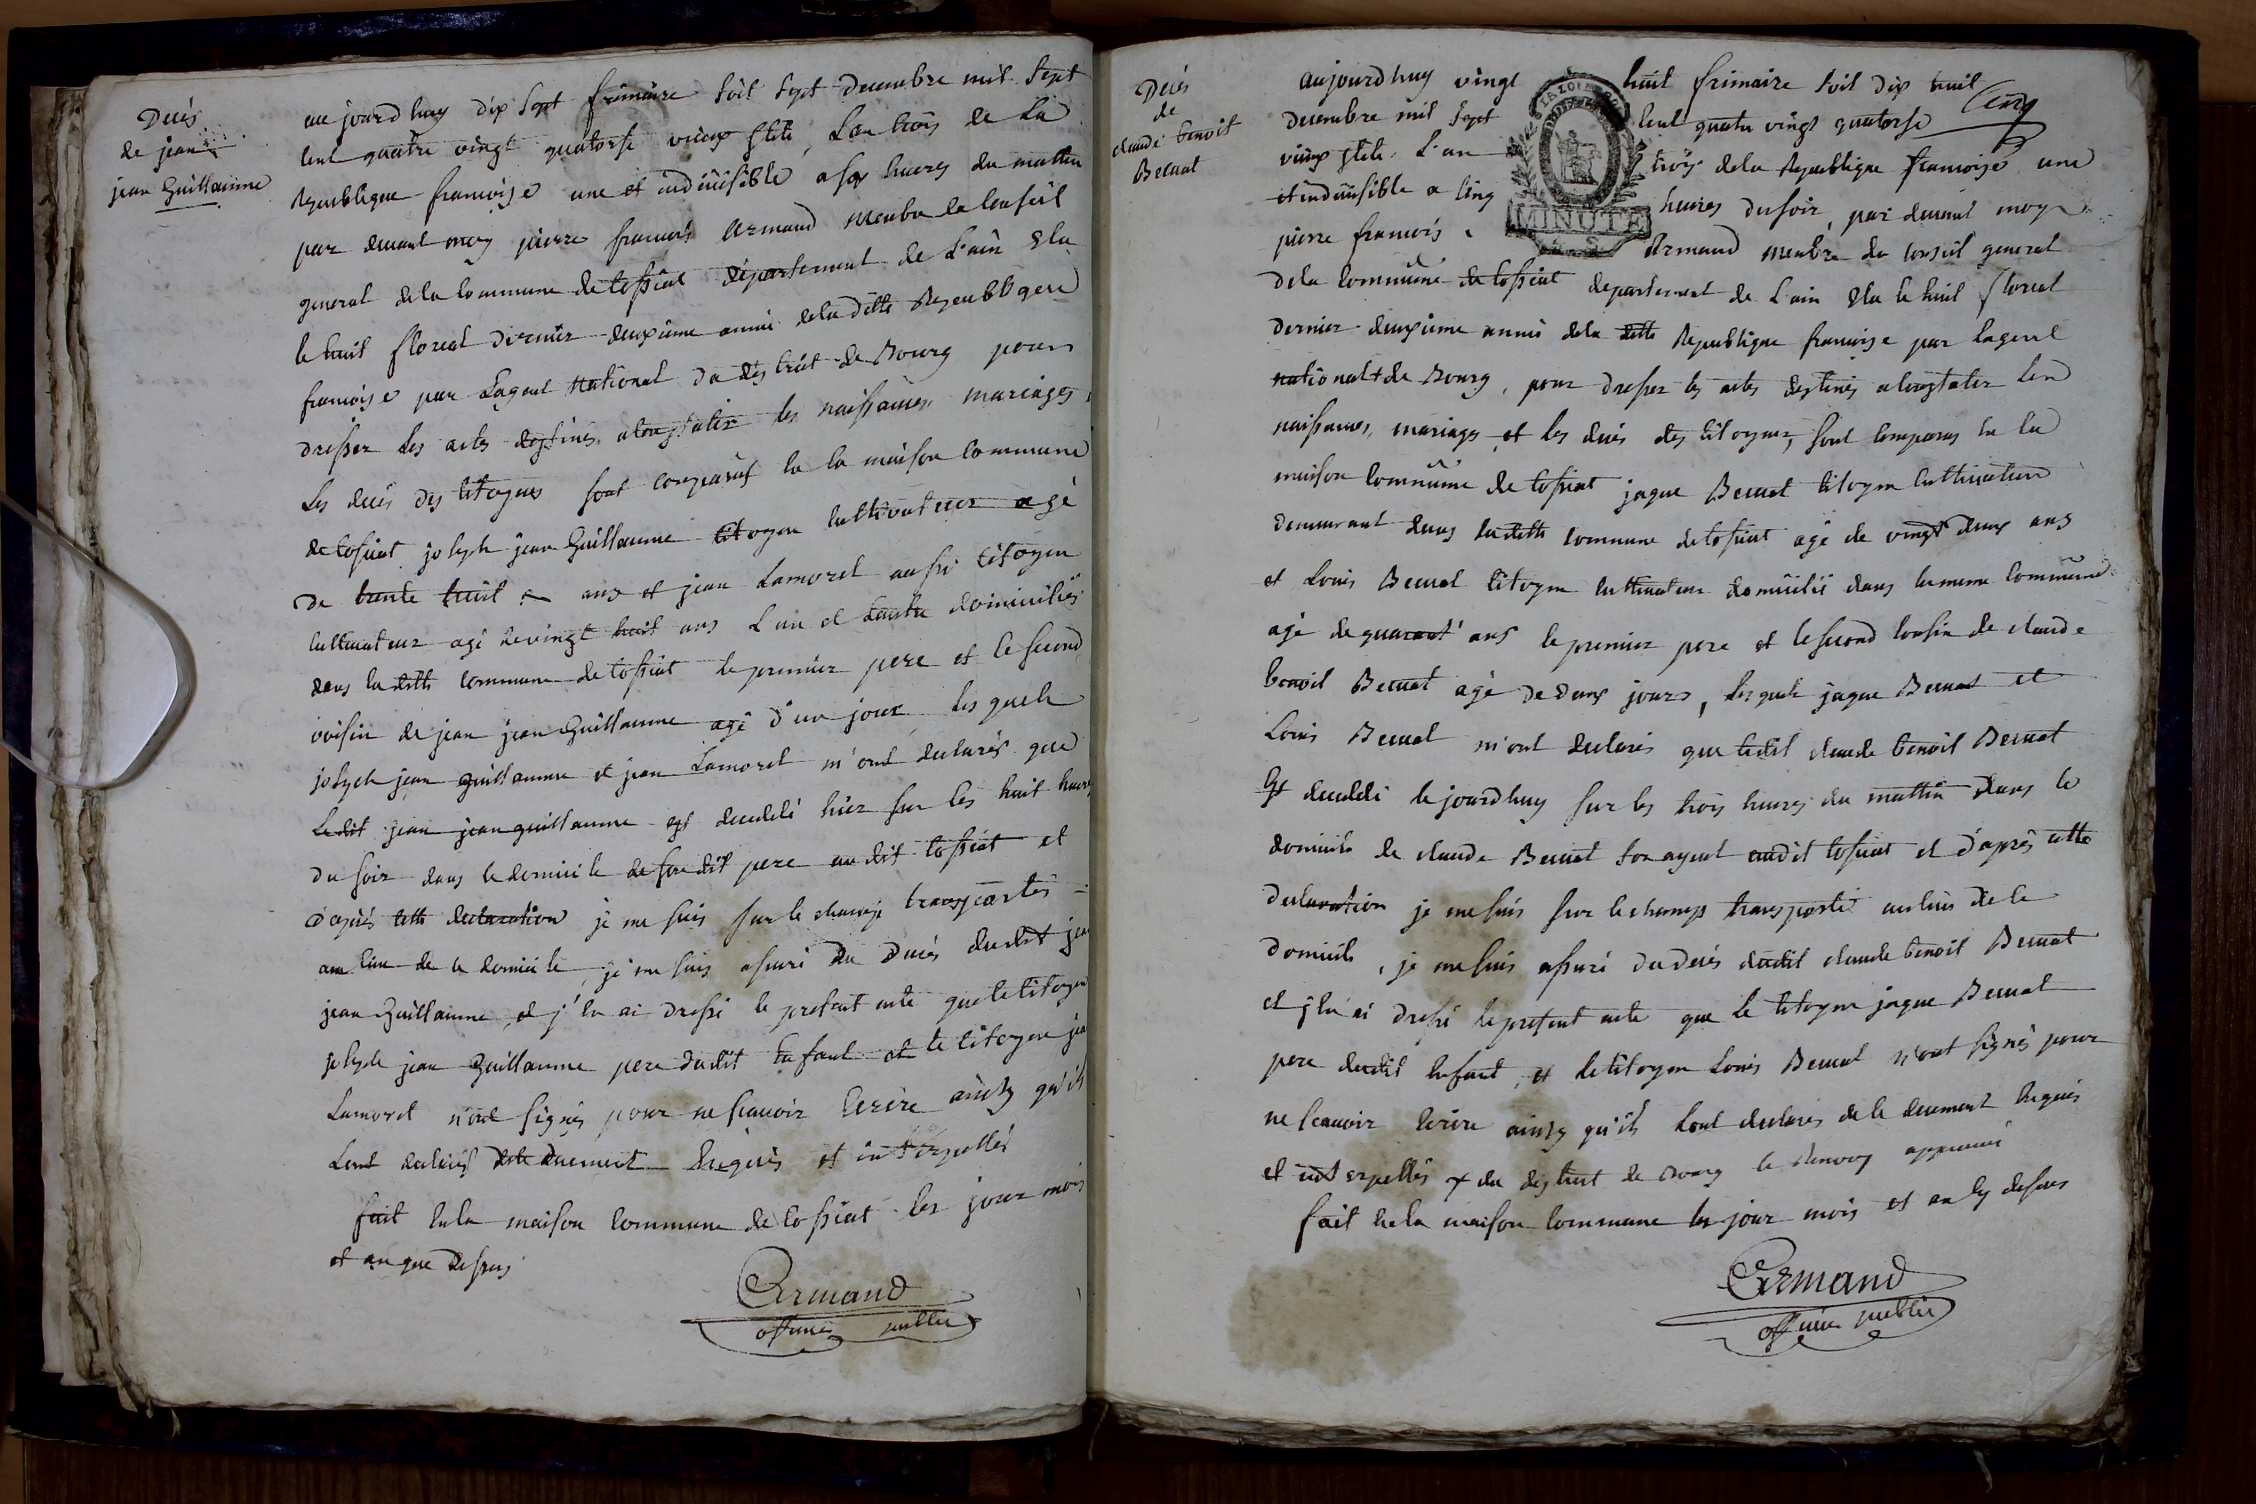 Decés
de jean
jean Guillaume
aujourdhuy dix sept frimaire soit sept decembre mil sept
cent quatre vingt quatorse vieux stile, L'an trois de La
Republique francoise une et indivisible a six heures du mattin
par devant moy pierre francois Armand membre de Conseil
general de la Commune de tossiat departement de L'ain elu
le huit floreal dernier deuxieme année de la ditte Republique
francoise par L'agent National du district de Bourg pour
dresser Les actes destinés a constater les naissances, mariages,
Les decés des Citoyens sont comparus en la maison Commune
de tossiat joseph jean Guillaume Citoyen Cultivateur agé
de trente huit ans et jean Lamoret aussi Citoyen
Cultivateur agé de vingt huit ans L'un et L'autre domiciliés
dans la ditte Commune de tossiat le premier pere et le second
voisin de jean jean Guillaume agé d'un jour Les quels
joseph jean guillaume et jean Lamoret m'ont declarés que
Ledit jean jean guillaume est decedé hier sur les huit heures
du soir dans le domicile de son dit pere au dit tossiat et
d'aprés cette declaration je me suis sur le champ transporté
au lieu de ce domicile, je me suis assuré du Decés dudit jean
jean Guillaume, et j'en ai dressé le present acte que le Citoyen
joseph jean Guillaume pere dudit Enfant et le Citoyen jean
Lamoret n'ont signés pour ne scavoir Ecrire ainsy qu'ils
L'ont declarés de ce duement Enquis et interpellés
fait En la maison Commune de tossiat les jour mois
et an que dessus
Armand
officier public
Decés
de
claude benoit
Becuat
aujourdhuy vingt huit frimaire soit dix huit
decembre mil sept cent quatre vingt quatorse
vieux stile. L'an trois de la Republique francoise une
et indivisible a cinq heures du soir, par devant moy
pierre francois Armand membre du conseil general
MINUTE
de la Commune de tossiat departement de L'ain elu le huit floreal
dernier deuxieme année de la ditte Republique francoise par L'agent
national + de Bourg, pour dresser les actes destinés a constater Les
naissances, mariages et les decés des Citoyens, sont comparus en la
maison Commune de tossiat jaque Becuat Citoyen Cultivateur
demeurant dans la ditte commune de tossiat agé de vingt deux ans
et Louis Becuat Citoyen Cultivateur domicilié dans la meme Commune
agé de quarant ans le premier pere et le second cousin de claude
benoit Becuat agé de deux jours, Les quels jaque Becuat et
Louis Becuat m'ont declarés que ledit claude benoit Becuat
Est decedé ce jourdhuy sur les trois heures du mattin dans le
domicile de claude Becuat son ayeul audit tossiat et d'aprés cette
declaration je me suis sur le champs transporté au lieu de ce
domicile, je me suis assuré du decés dudit claude benoit Becuat
et j'en ai dressé le present acte que le Citoyen jaque Becuat
pere dudit Enfant, et le Citoyen Louis Becuat n'ont signés pour
ne scavoir Ecrire ainsy qu'ils L'ont declarés de ce duement Enquis
et interpellés + du district de Bourg le Renvoy approuvé
fait En la maison Commune les jour mois et an que dessus
Armand
officier public